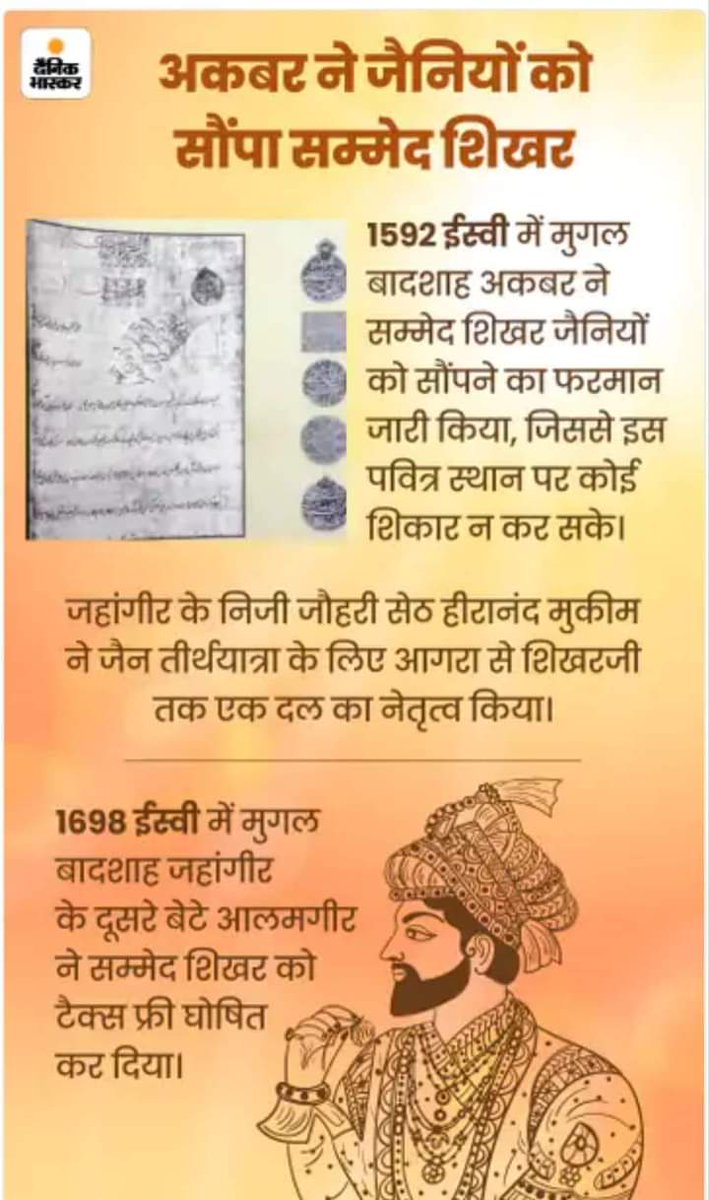 दैनिक
भास्कर
अकबर ने जैनियों को
सौंपा सम्मेद शिखर
1592 ईस्वी में मुगल
बादशाह अकबर ने
सम्मेद शिखर जैनियों
को सौंपने का फरमान
जारी किया, जिससे इस
पवित्र स्थान पर कोई
शिकार न कर सके।
जहांगीर के निजी जौहरी सेठ हीरानंद मुकीम
ने जैन तीर्थयात्रा के लिए आगरा से शिखरजी
तक एक दल का नेतृत्व किया।
1698 ईस्वी में मुगल
बादशाह जहांगीर
के दूसरे बेटे आलमगीर
ने सम्मेद शिखर को
टैक्स फ्री घोषित
कर दिया।